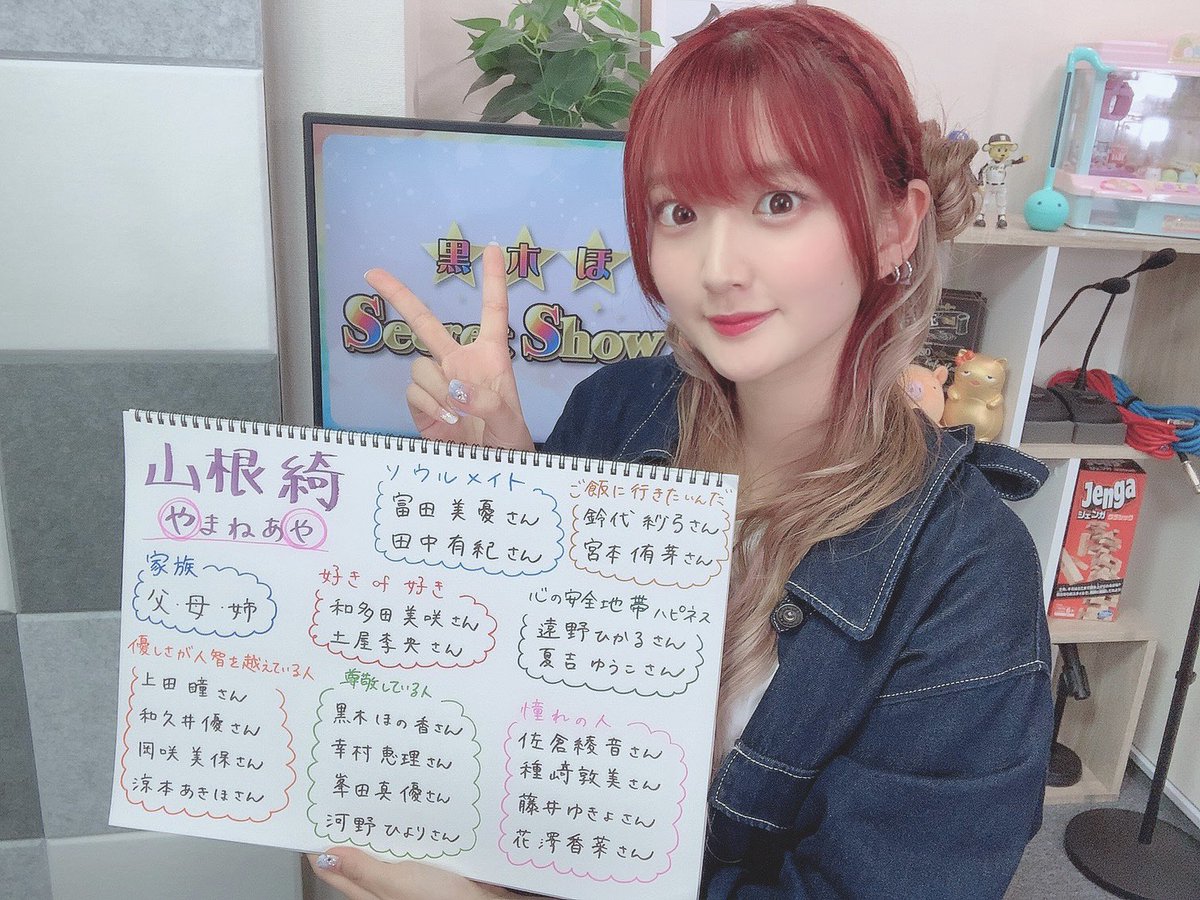 黒木ほ
Secret Show
山根綺
やまねあや
ソウルメイト
富田美憂さん
田中有紀さん
ご飯に行きたいんだ
鈴代紗弓さん
宮本侑芽さん
家族
父・母・姉
好き of 好き
和多田美咲さん
土屋李央さん
心の安全地帯ハピネス
遠野ひかるさん
夏吉ゆうこさん
優しさが人智を越えている人
上田瞳さん
和久井優さん
岡咲美保さん
涼本あきほさん
尊敬している人
黒木ほの香さん
幸村恵理さん
峯田真優さん
河野ひよりさん
憧れの人
佐倉綾音さん
種﨑敦美さん
藤井ゆきよさん
花澤香菜さん
Jenga
ジェンガ